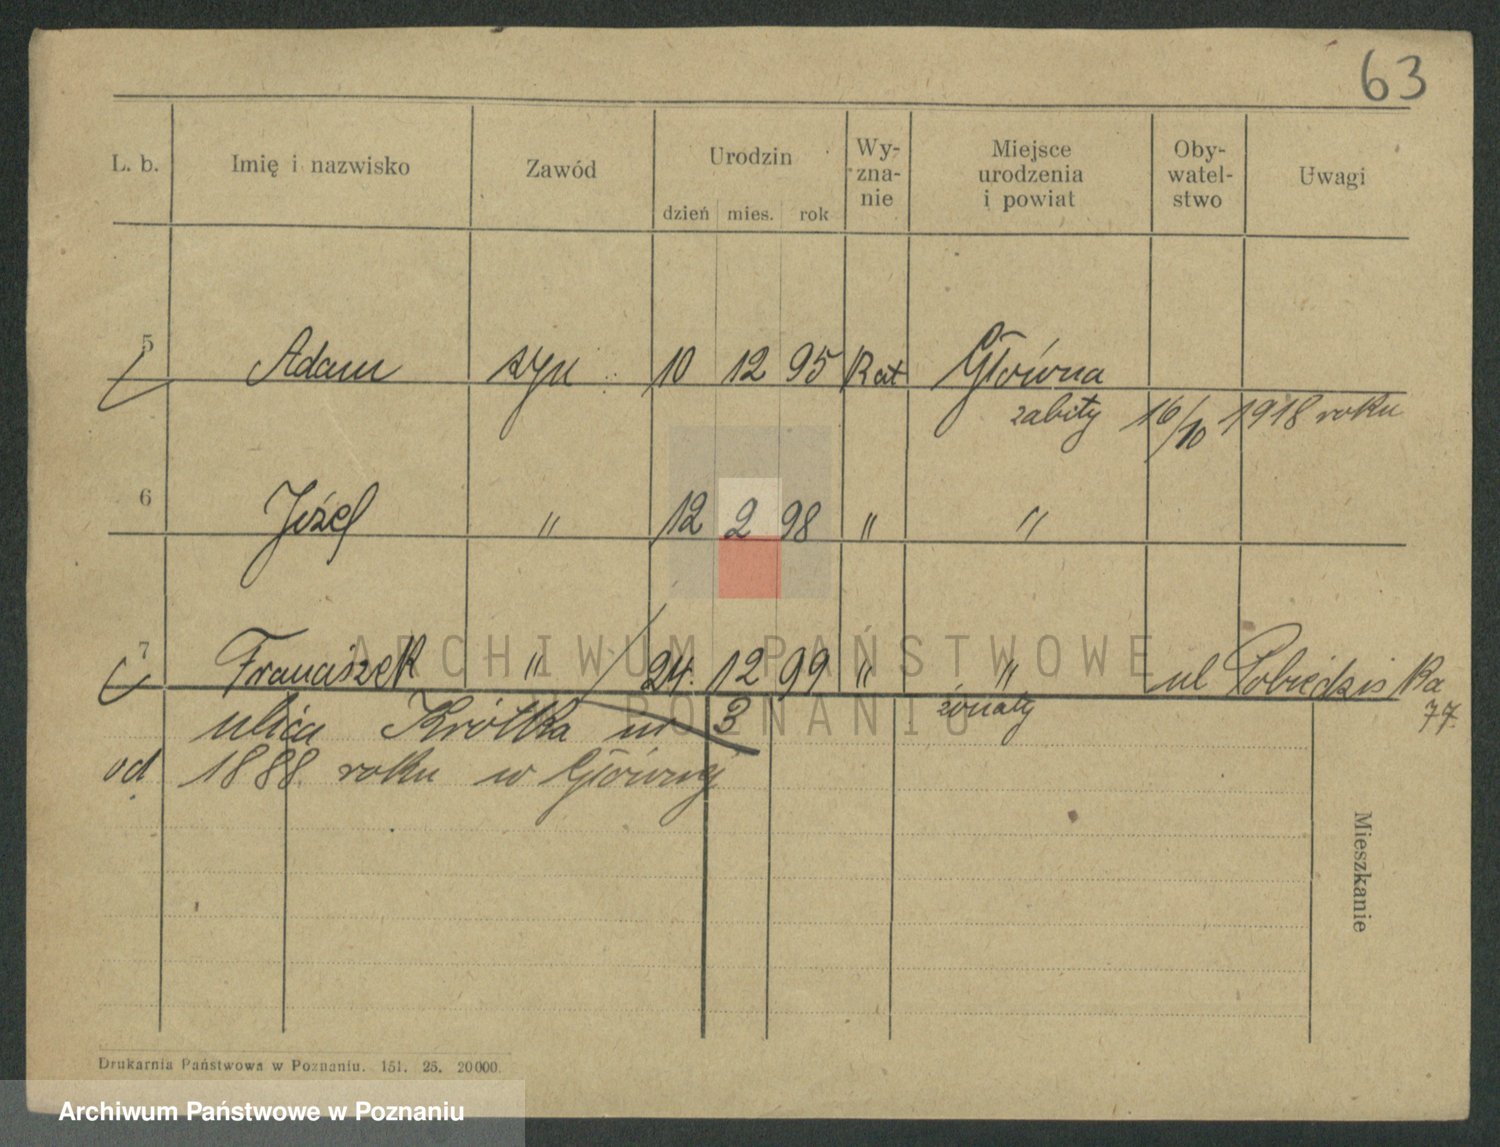 63
L. b. Imię i nazwisko Zawód Urodzin Wy-zna-nie Miejsce urodzenia i powiat Oby-watel-stwo Uwagi
dzień mies. rok
5 Adam syn 10 12 95 Kat Główna
zabity 16/10 1918 roku
6 Józef " 12 2 98 " "
ARCHIWUM PAŃSTWOWE
POZNANIU
7 Franciszek " 24. 12 99 " " ul Pobiedziska
77.
żonaty
ulica Krótka nr 3
od 1888. roku w Głównej
Mieszkanie
Drukarnia Państwowa w Poznaniu. 151. 25. 20000.
Archiwum Państwowe w Poznaniu